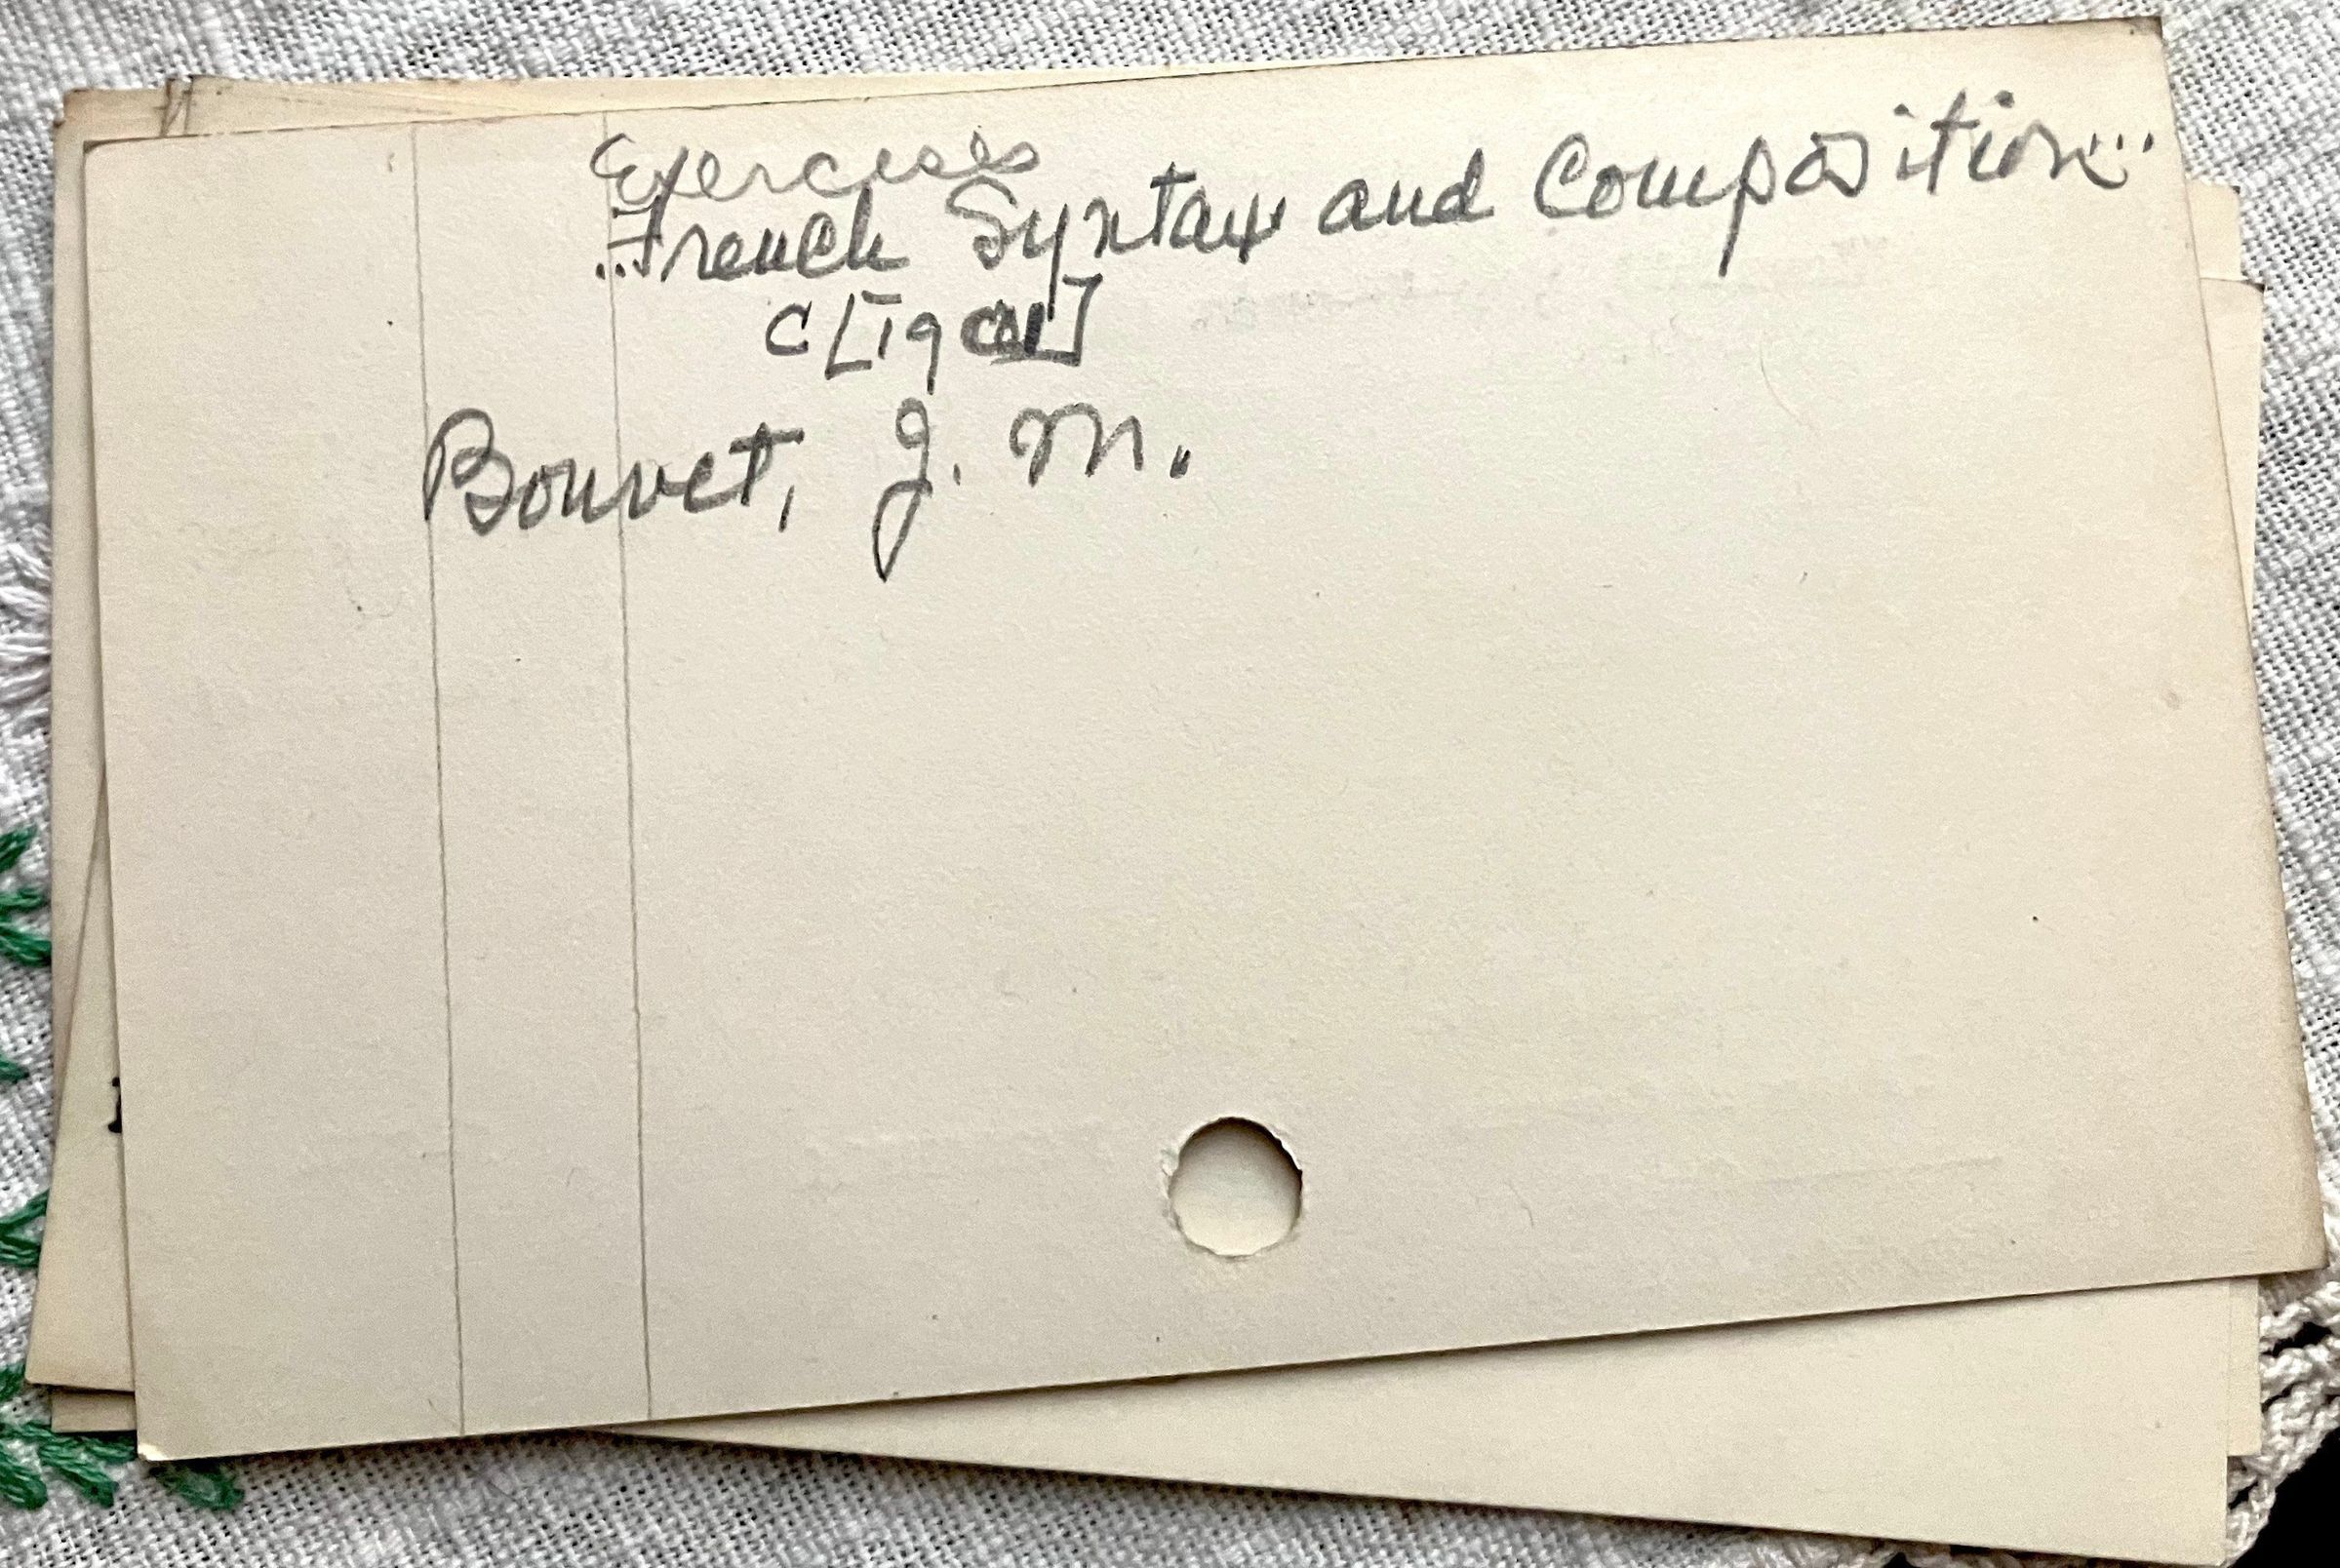 Exercises
...French Syntax and Composition...
c[1901]
Bouvet, J. M.